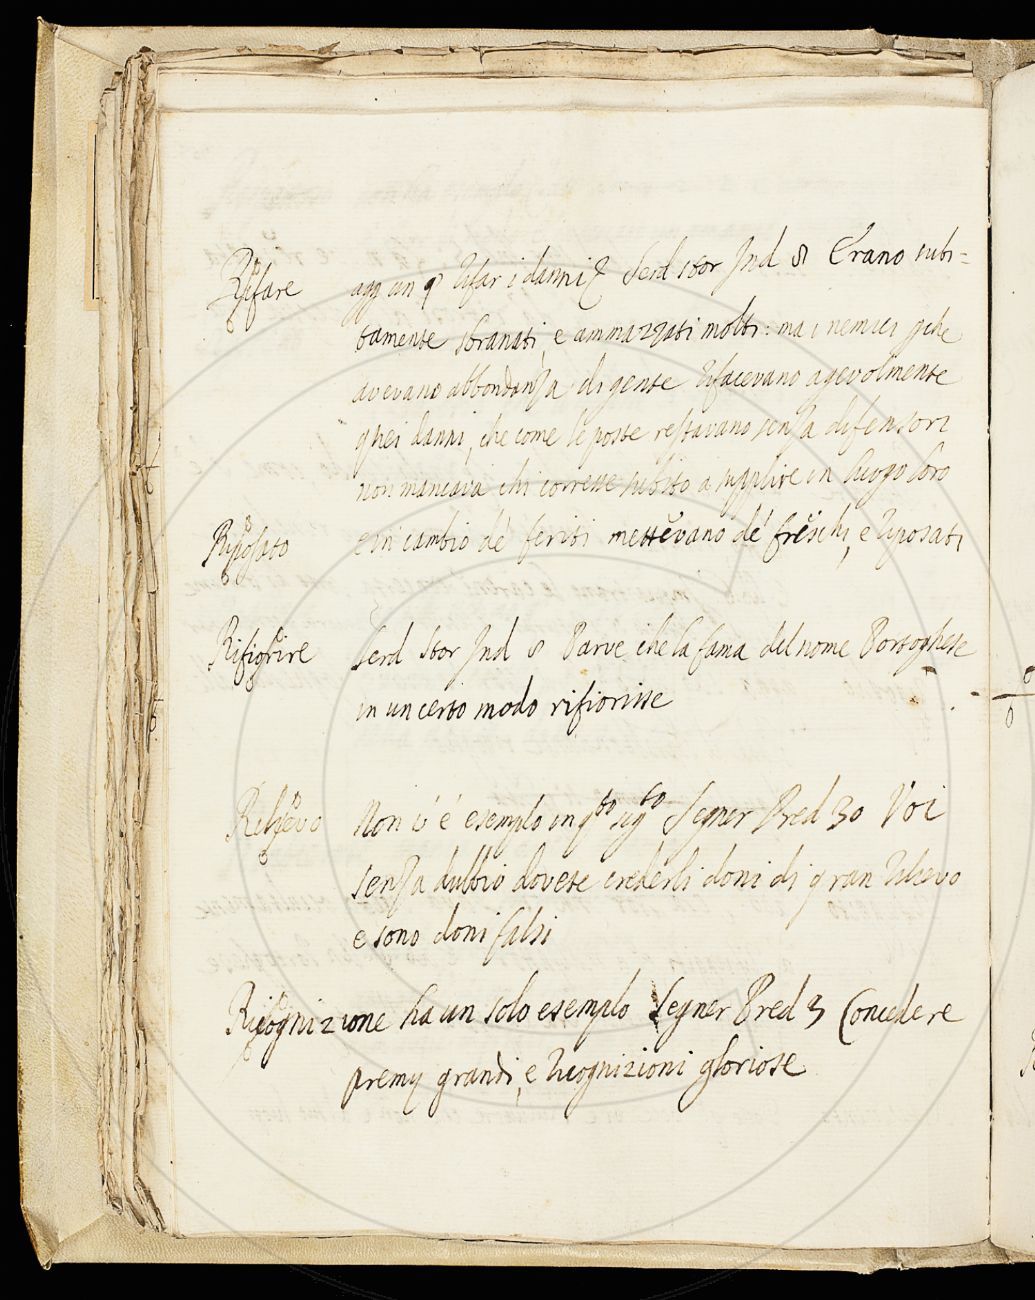 Rifare agg un § Rifar i danni § Serd stor Ind 8 Erano subi=
tamente sbranati, e ammazzati molti: ma i nemici pche
avevano abbondanza di gente rifacevano agevolmente
quei danni, che come le poste restavano senza difensori
non mancava chi corresse subito a supplire in luogo loro
Riposato e in cambio de' feriti mettevano de' freschi, e riposati
Rifiorire Serd Stor Ind 8 Parve che la fama del nome Portoghese
in un certo modo rifiorisse
Rilievo Non v'è esempio in qto sigto Segner Pred 30 Voi
senza dubbio dovete crederli doni di gran rilievo
e sono doni falsi
Ricognizione ha un solo esempio Segner Pred 3 Concedere
premij grandi, e ricognizioni gloriose